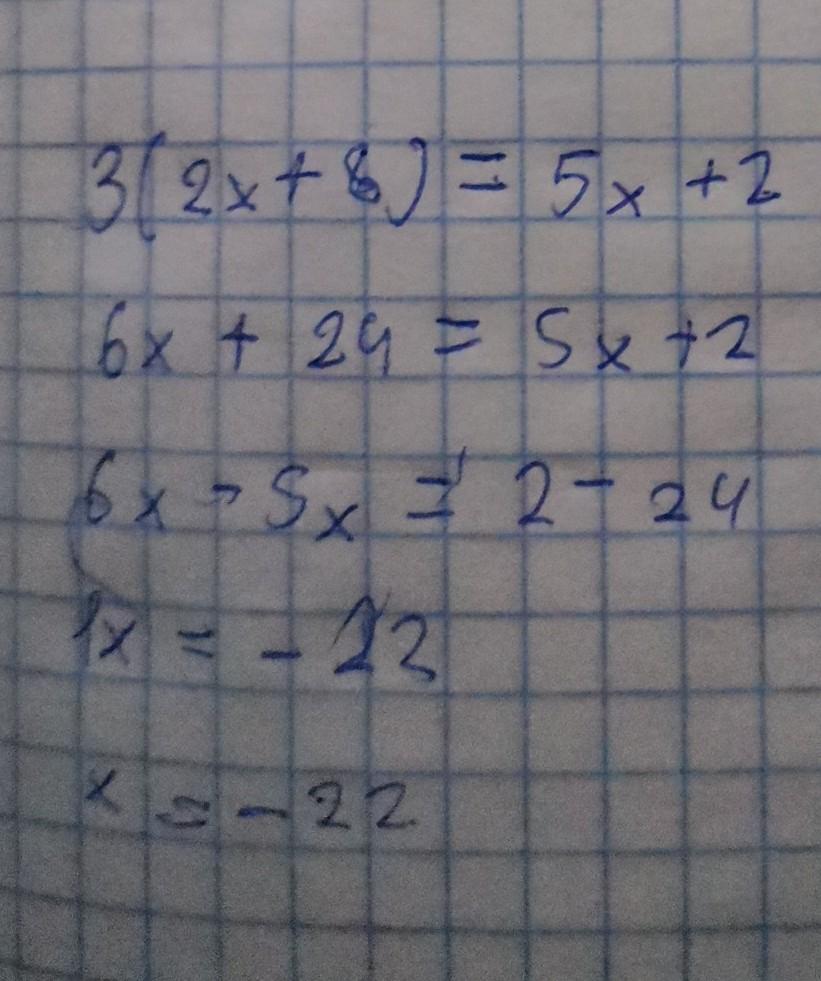 3(2x+8) = 5x +2
6x + 24 = 5x +2
6x - 5x = 2 - 24
1x = - 22
x = - 22